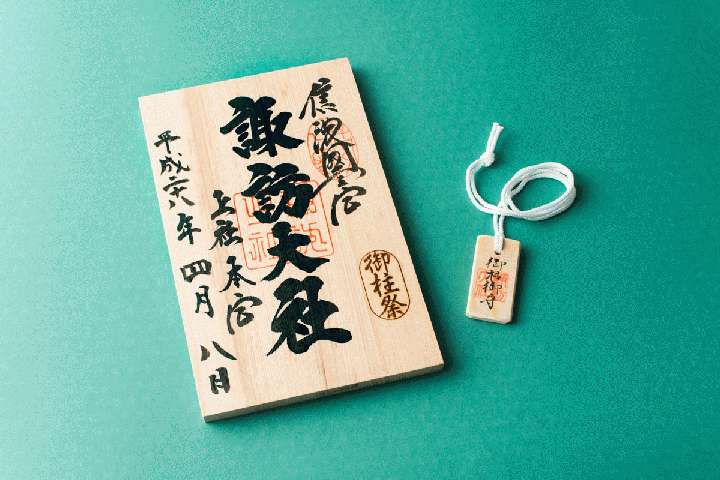 信濃國一之宮
諏訪大社
御柱祭
上社本宮
平成二十八年四月八日
御柱御守